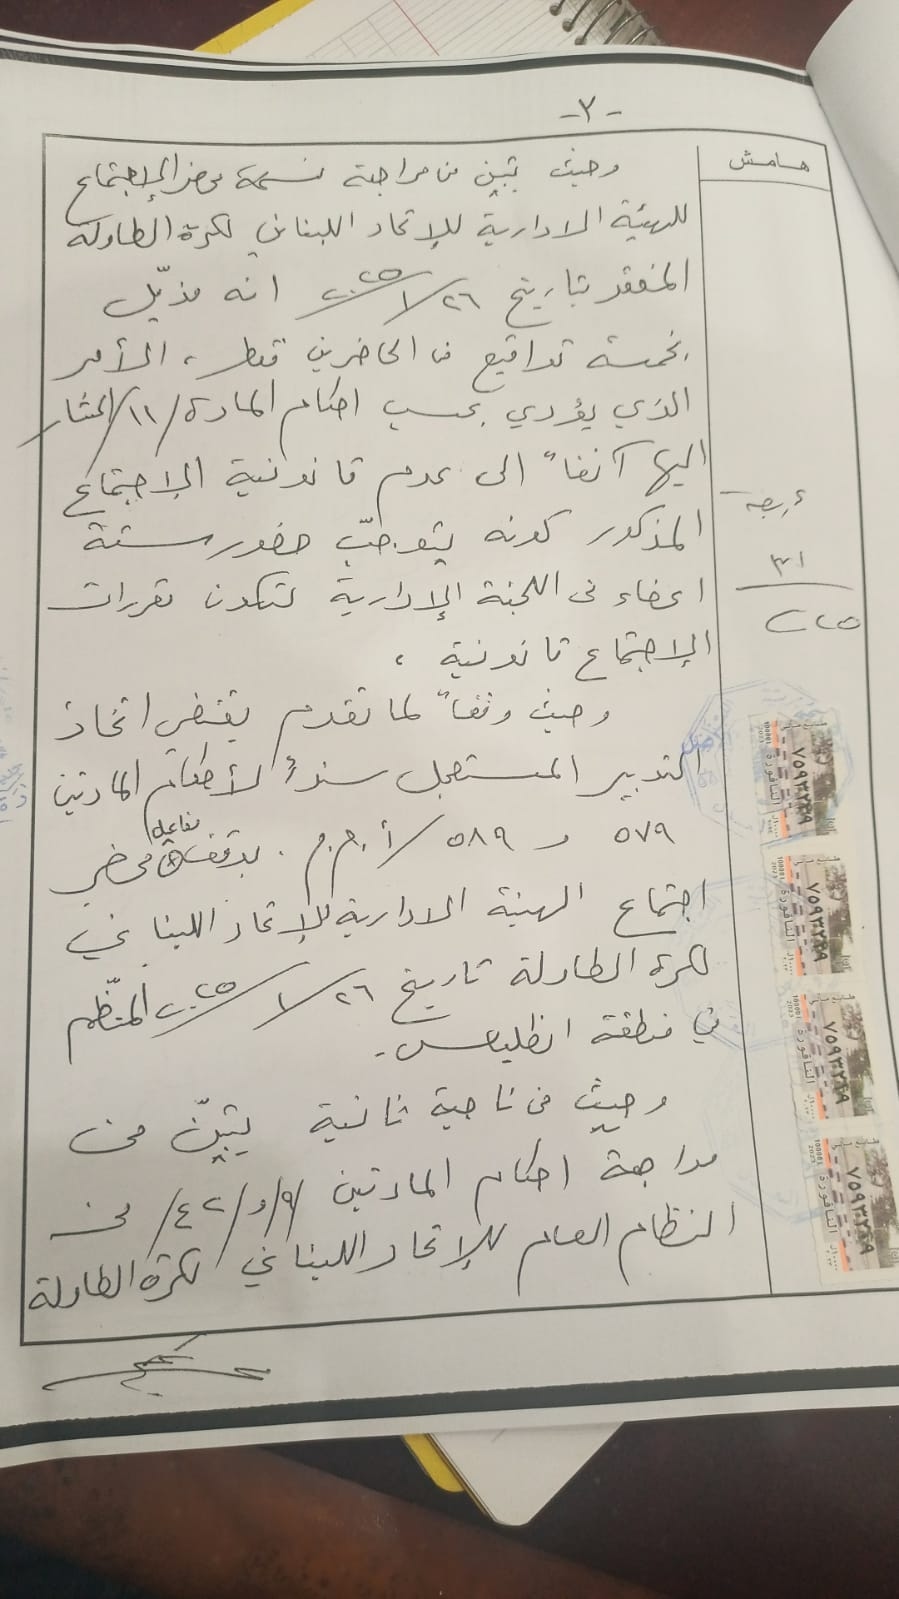 -٢-
هامش
وحيث تبين من مراجعة نسخة محضر الإجتماع
للهيئة الادارية للإتحاد اللبناني لكرة الطاولة
المنعقد بتاريخ ٢٦/١/٢٠٢٥ انه مذيّل
بخمسة تواقيع من الحاضرين فقط، الأمر
الذي يؤدي بحسب احكام المادة/١١/المشار
اليها آنفاً الى عدم قانونية الإجتماع
المذكور كونه يتوجّب حضور ستة
اعضاء من اللجنة الإدارية لتكون مقررات
الإجتماع قانونية،
وحيث وفقاً لما تقدم يقتضى اتخاذ
التدبير المستعجل سنداً لأحكام المادتين
٥٧٩ و ٥٨٩/أ.م.م. بوقف مفاعيل محضر
اجتماع الهيئة الادارية للإتحاد اللبناني
لكرة الطاولة تاريخ ٢٦/١/٢٠٢٥ المنظّم
في منطقة انطلياس.
وحيث من ناحية ثانية يتبيّن من
مراجعة احكام المادتين /٩/و/٤٢/ من
النظام العام للإتحاد اللبناني لكرة الطاولة
٢٠٢٥
٧٥٩٣٢٩٩
100001
2023
الناقورة
٧٥٩٣٢٩٩
100001
2023
الناقورة
٧٥٩٣٢٩٩
100001
2023
الناقورة
٧٥٩٣٢٩٩
100001
2023
الناقورة